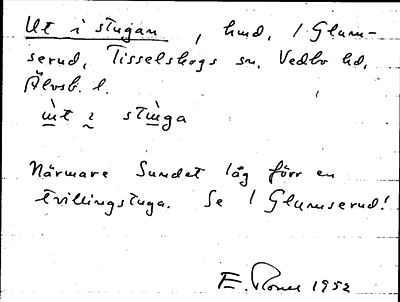 Ut i stugan, hmd, 1 Glum-
serud, Tisselskogs sn, Vedbo hd,
Älvsb. l.
ùt i stùga
Närmare Sundet låg förr en
tvillingstuga. Se 1 Glumserud!
E. 1952